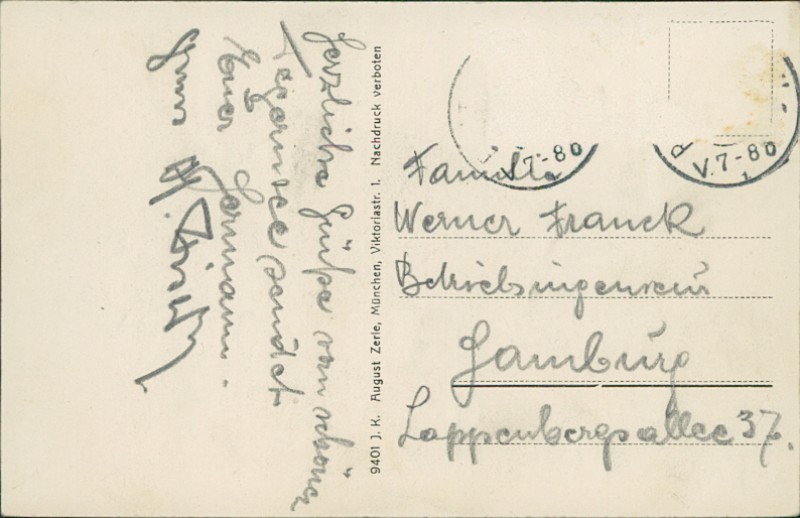 Herzliche Grüße vom schönen
Tegernsee sendet
Euer Hermann.
9401 J. K. August Zerle, München, Viktoriastr. 1. Nachdruck verboten
V.7-80
V.7-80
Familie
Werner Franck
Betriebsingenieur
Hamburg
Lappenbergsallee 37.